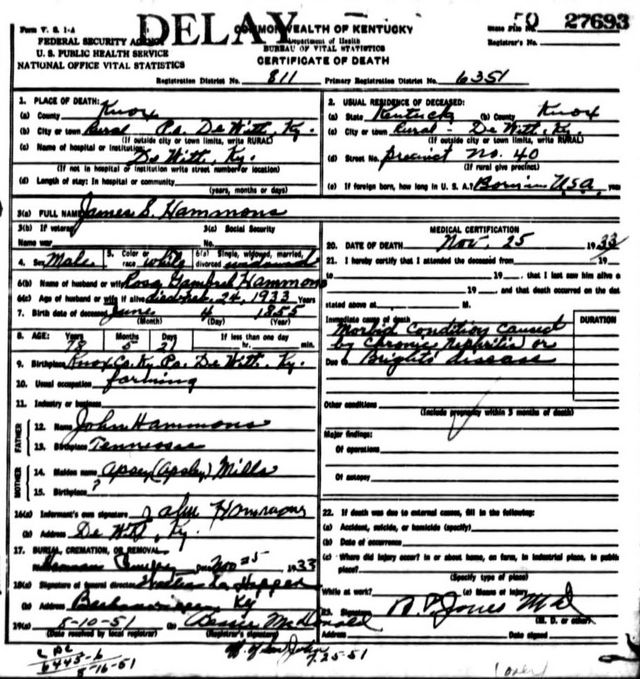 DELAY
Form V. S. 1-A
FEDERAL SECURITY AGENCY
U. S. PUBLIC HEALTH SERVICE
NATIONAL OFFICE VITAL STATISTICS
COMMONWEALTH OF KENTUCKY
Department of Health
BUREAU OF VITAL STATISTICS
CERTIFICATE OF DEATH
50 27693
State File No.
Registrar's No.
Registration District No. 811 Primary Registration District No. 6351
1. PLACE OF DEATH:
(a) County Knox
(b) City or town Rural Po. De Witt, Ky.
(If outside city or town limits, write RURAL)
(c) Name of hospital or institution: De Witt, Ky.
(If not in hospital or institution write street number or location)
(d) Length of stay: In hospital or community
(years, months or days)
2. USUAL RESIDENCE OF DECEASED:
(a) State Kentucky (b) County Knox
(c) City or town Rural - De Witt, Ky.
(If outside city or town limits, write RURAL)
(d) Street No. Precinct No. 40
(If rural give precinct)
(e) If foreign born, how long in U. S. A.? Born in USA
3(a) FULL NAME James S. Hammons
3(b) If veteran, Name war
3(c) Social Security No.
4. Sex Male 5. Color or race white 6(a) Single, widowed, married, divorced widowed
6(b) Name of husband or wife Rosa Gambrel Hammons
6(c) Age of husband or wife if alive died 24, 1933 Years
7. Birth date of deceased June 4 1855
(Month) (Day) (Year)
8. AGE: Years Months Days If less than one day
78 5 21 hr. min.
9. Birthplace Knox Co. Ky Po. De Witt, Ky.
10. Usual occupation farming
11. Industry or business
FATHER
12. Name John Hammons
13. Birthplace Tennessee
MOTHER
14. Maiden name Apsey (Apsley) Mills
15. Birthplace ?
16(a) Informant's own signature Hammons
(b) Address De Witt, Ky.
17. BURIAL, CREMATION, OR REMOVAL
Nov 25 1933
18(a) Signature of funeral director Hopper
(b) Address Ky
19(a) 8-10-51 (b) Bessie McDonald
(Date received by local registrar) (Registrar's signature)
MEDICAL CERTIFICATION
20. DATE OF DEATH Nov. 25 1933
21. I hereby certify that I attended the deceased from 19
to 19 , that I last saw him alive on
19 , and that death occurred on the date
stated above at M.
Immediate cause of death
DURATION
Morbid Condition Caused
by Chronic Nephritis or
Due to Bright's disease
Other conditions
(Include pregnancy within 3 months of death)
Major findings:
Of operations
Of autopsy
22. If death was due to external causes, fill in the following:
(a) Accident, suicide, or homicide (specify)
(b) Date of occurrence
(c) Where did injury occur? In or about home, on farm, in industrial place, in public
place?
(Specify type of place)
While at work? (e) Means of injury
23. Signature Jones MD
(M. D. or other)
Address Date signed
6445-6
8-16-51
7-25-51
(over)